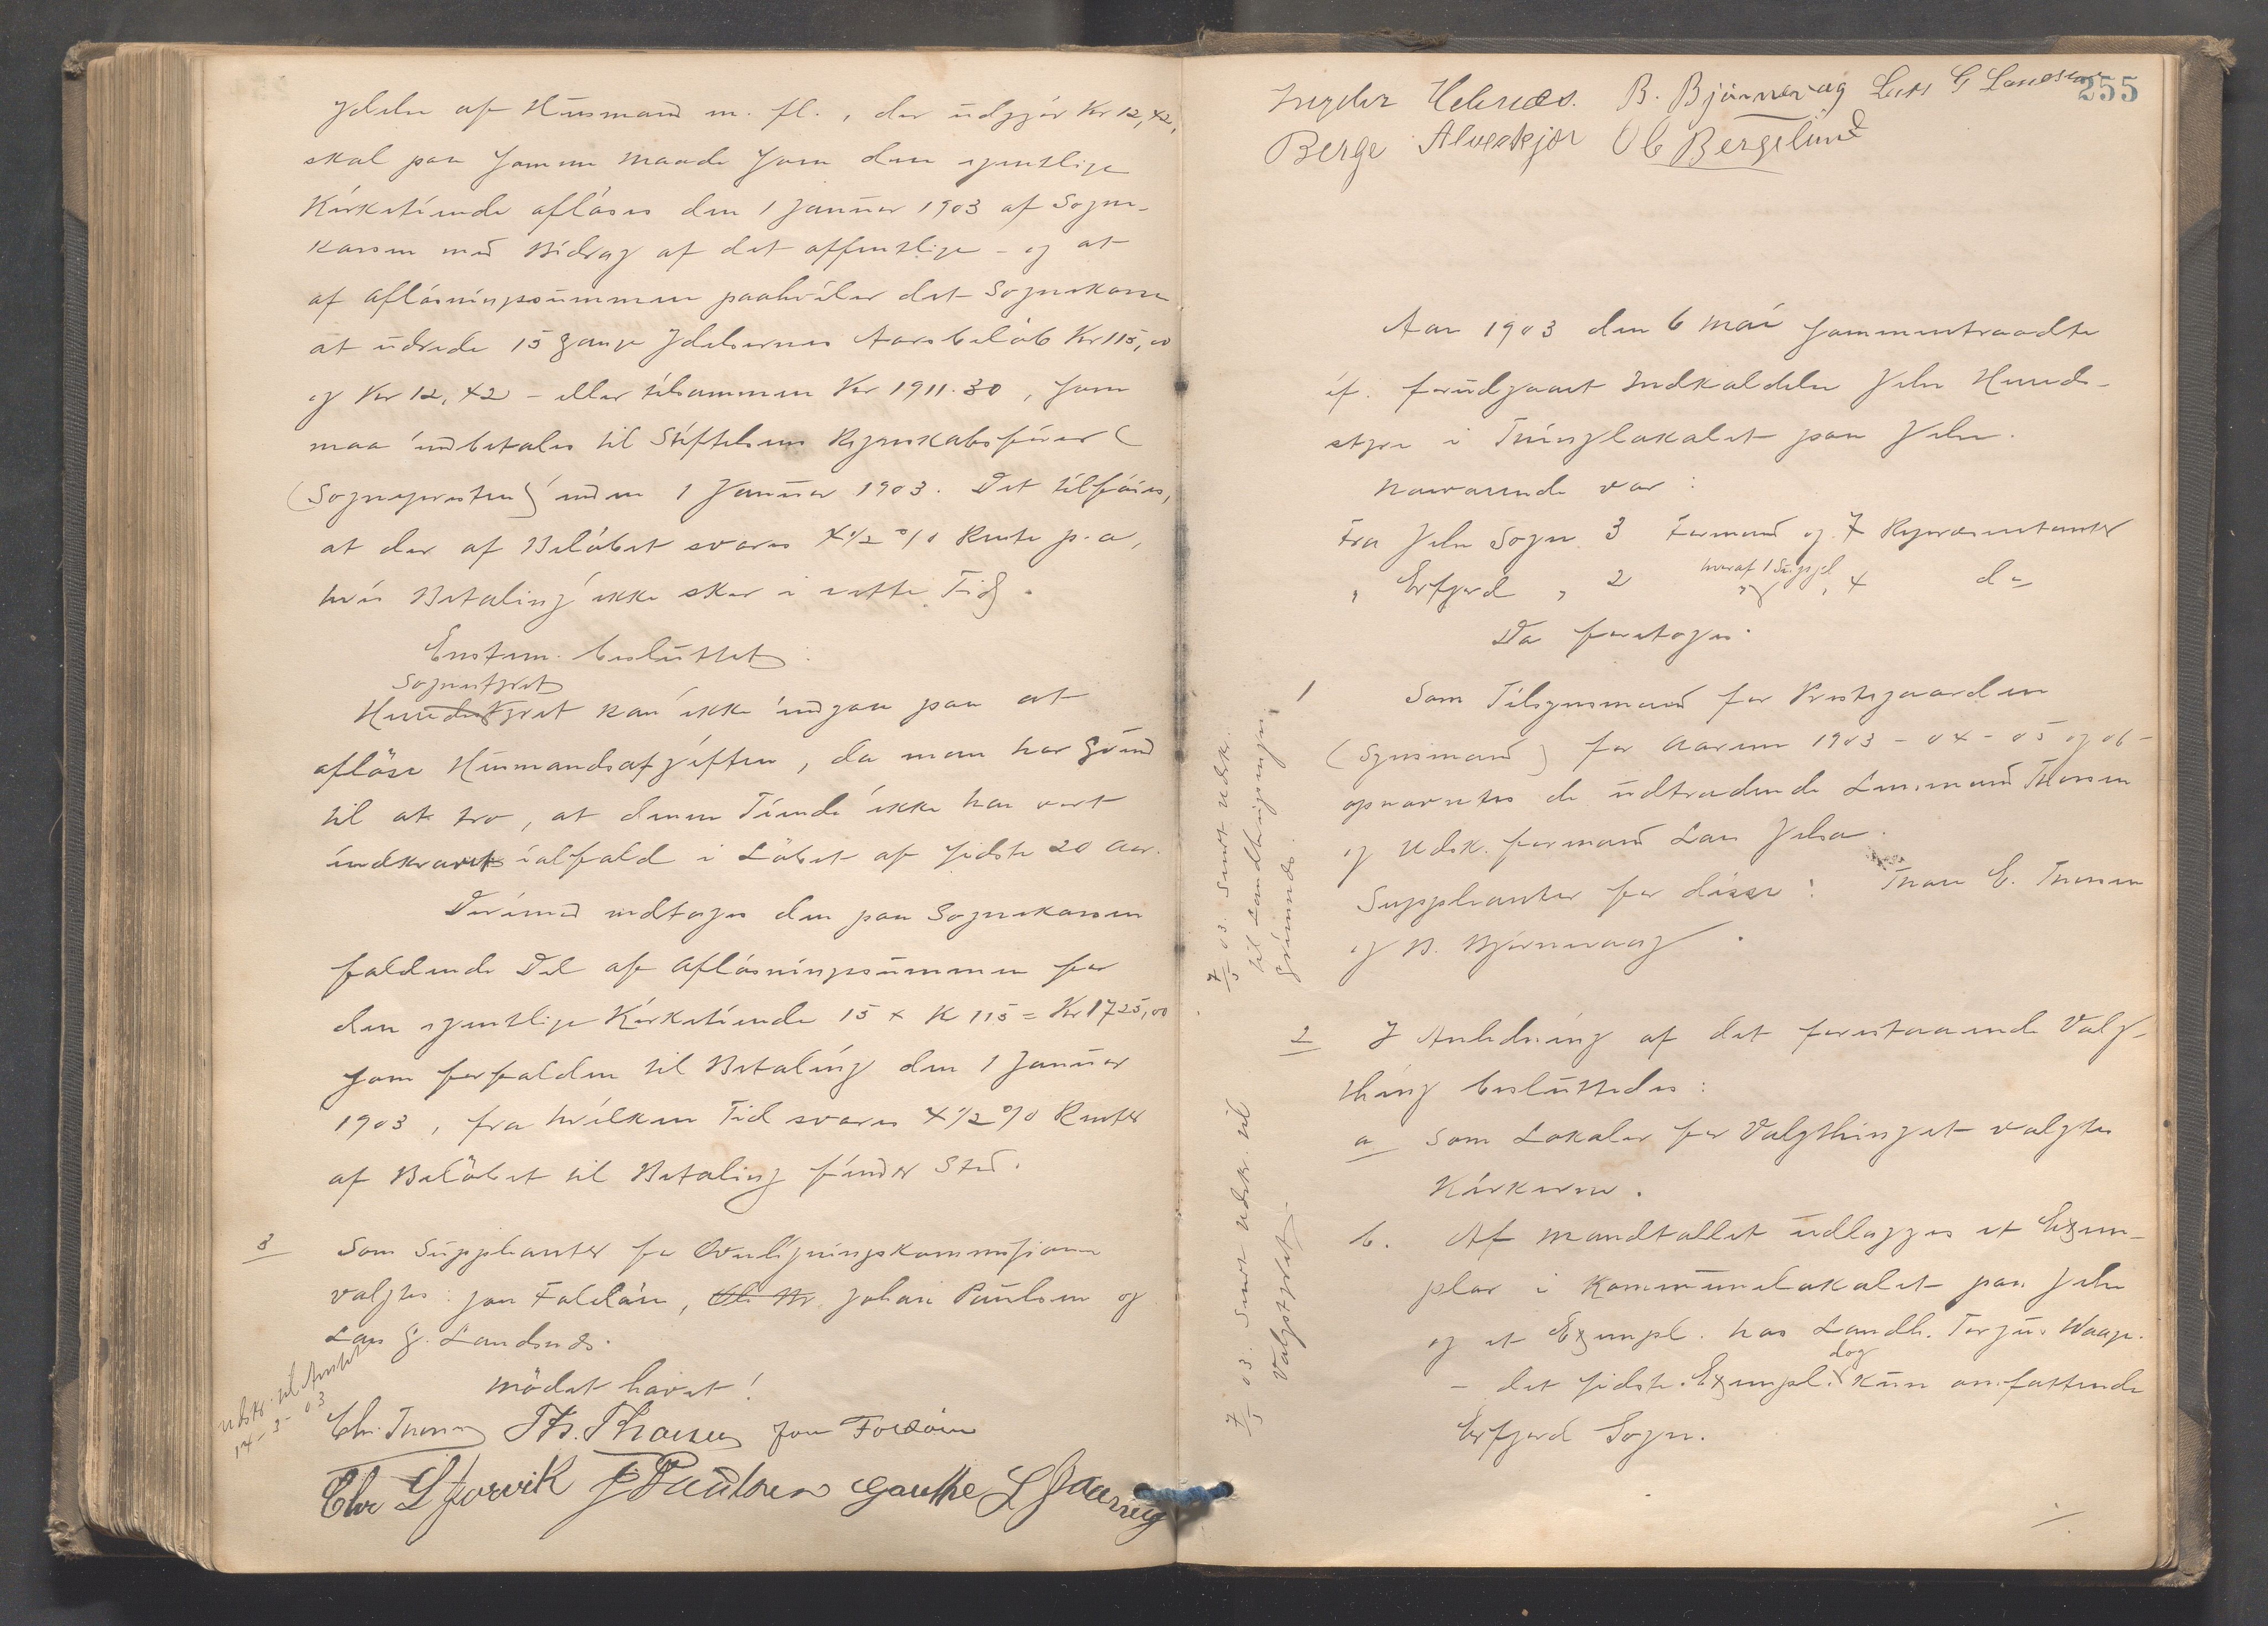 Ydelse af Husmænd m. fl., der udgjør Kr 12,42,
skal paa samme Maade som den egentlige
Kirketiende afløses den 1 Januar 1903 af Sogne-
kassen med Bidrag af det offentlige - og at
af Afløsningssummen paahviler det Sognekassen
at udrede 15 Gange Ydelsernes Aarsbeløb Kr 115,00
og Kr 12,42 - eller tilsammen Kr 1911.30, som
maa indbetales til Stiftelsens Regnskabsfører (
(Sognepresten) inden 1 Januar 1903. Det tilføies,
at der af Beløbet svares 4 1/2 % Rente p. a,
hvis Betaling ikke sker i rette Tid.
Enstem. besluttet:
Sognestyret
Herredsstyret kan ikke indgaa paa at
afløse Husmandsafgiften, da man har Grund
til at tro, at denne Tiende ikke har vært
indkrævet ialfald i Løbet af sidste 20 Aar.
Derimod vedtoges den paa Sognekassen
faldende Del af Afløsningssummen for
den egentlige Kirketiende 15 x K 115 = Kr 1725,00
som forfalden til Betaling den 1 Januar
1903, fra hvilken Tid svares 4 1/2 % Renter
af Beløbet til Betaling finder Sted.
3 Som Suppleanter for Overligningskommissionen
valgtes: Jon Foldøen, Johan Paulsen og
Lars G. Landsnes.
Mödet hævet!
Udskr. til Amtet
14-3-03
Chr. Thorsen Th. Thorsen Jon Foldöen
Chr L Hjorvik J Paulsen Gauthe L
255
Ingebr Hebnes. B. Björnevaag Lars G Landsnes
Berge Alveskjær O b Bergelund
Aar 1903 den 6 Mai sammentraadte
if. forudgaaet Indkaldelse Jelse Herreds-
styre i Thinglokalet paa Jelse.
Nærværende var:
Fra Jelse Sogn 3 Formænd og 7 Repræsentanter
hvoraf 1 Suppl
" Erfjord " 2 og " 4 do
Da foretoges:
1 Som Tilsynsmænd for Prestegaarden
(Synsmænd) for Aarene 1903 - 04 - 05 og 06 -
opnævntes de udtrædende Lensmand Thorsen
og Udsk. formand Lars Jelsa.
Suppleanter for disse: Thore E. Thorsen
og B. Björnevaag.
7/5 03. Sendt Udsk.
til Landbrugsingen.
Grimnes.
2 I Anledning af det forestaaende Valg-
thing besluttedes:
a Som Lokaler for Valgthinget valgtes
Kirkerne.
b. Af Mandtallet udlægges et Exem-
plar i Kommunelokalet paa Jelse
og et Exempl. hos Landh. Torger Waage.
dog
- det sidste Exempl. kun omfattende
Erfjord Sogn.
7/5 03. Sendt Udskr. til
Valgstyret.